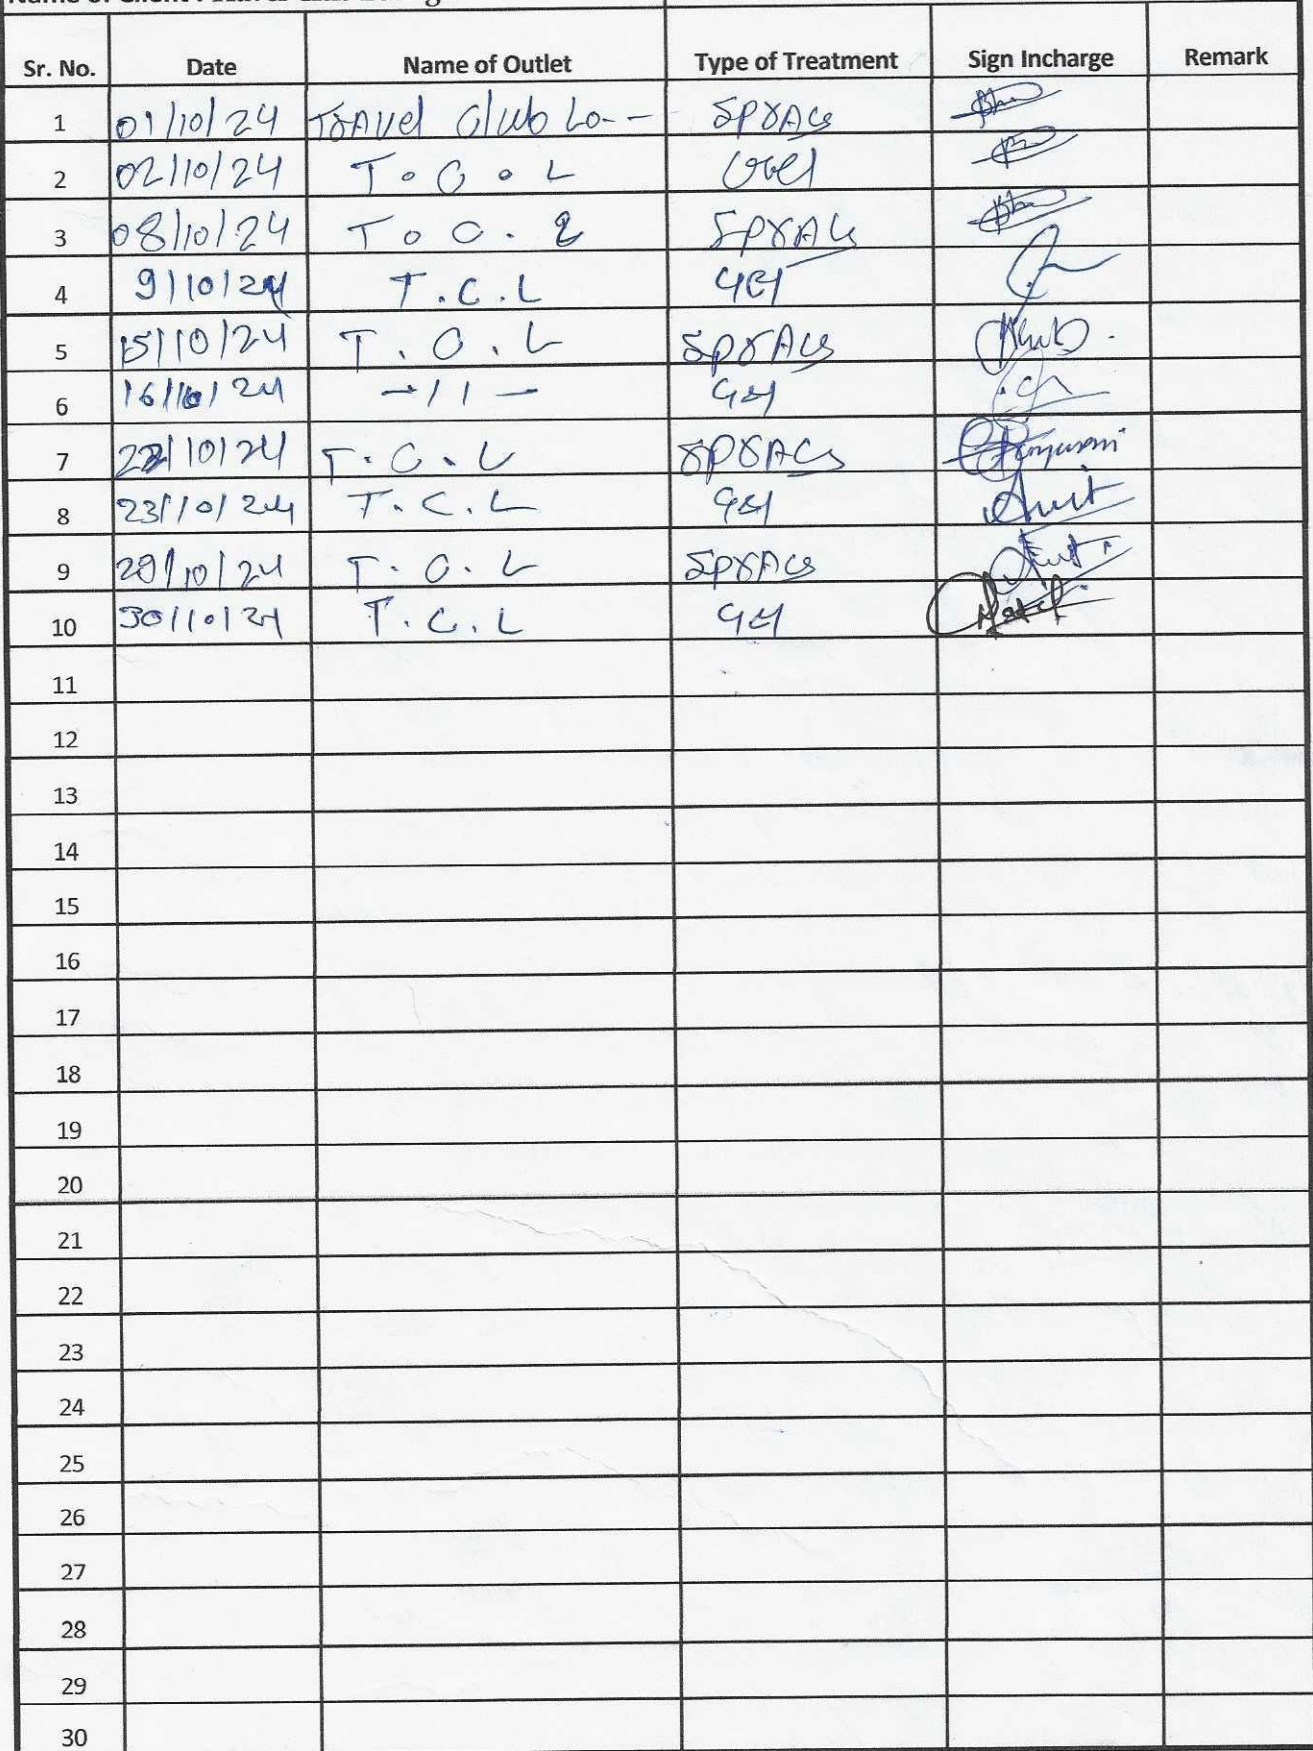 Sr. No. Date Name of Outlet Type of Treatment Sign Incharge Remark
1 01/10/24 Travel Club Lo-- Spray
2 02/10/24 T.C.L Gel
3 08/10/24 T.C.L Spray
4 9/10/24 T.C.L Gel
5 15/10/24 T.C.L Spray
6 16/10/24 -11- Gel
7 22/10/24 T.C.L Spray
8 23/10/24 T.C.L Gel
9 29/10/24 T.C.L Spray
10 30/10/24 T.C.L Gel
11
12
13
14
15
16
17
18
19
20
21
22
23
24
25
26
27
28
29
30